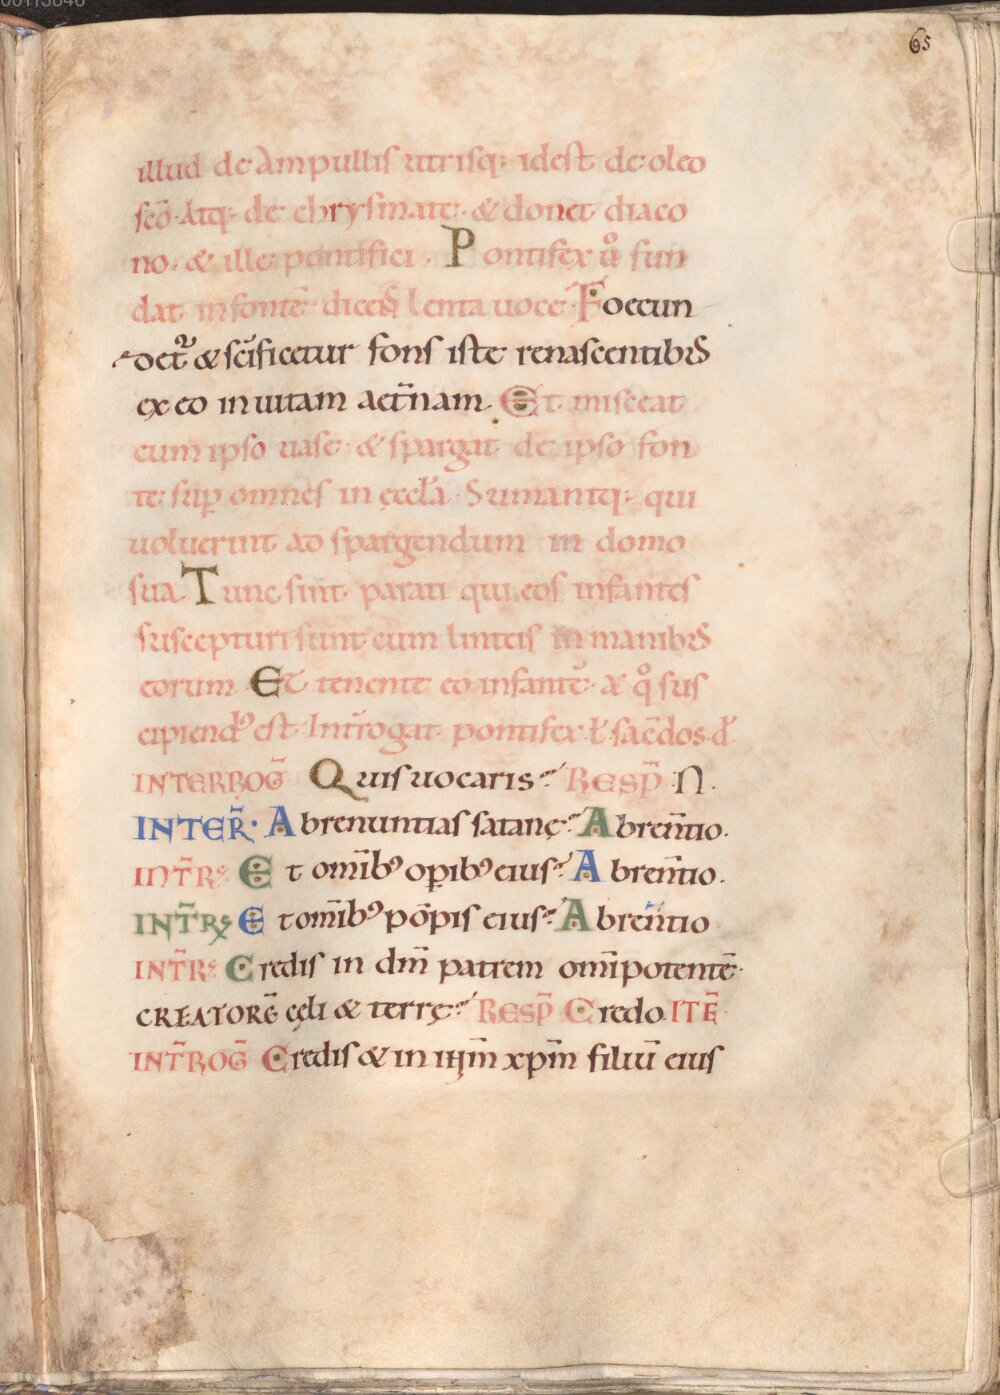 65
illud de ampullis utrisq; idest de oleo
sc̄o. Atq; de chrysmate. & donet diaco
no. & ille pontifici. Pontifex ū fun
dat in fonte. dicens lenta uoce Foecun
detur & sc̄ificetur fons iste renascentibus
ex eo in uitam aet̄nam. Et misceat
cum ipso uase. & spargat de ipso fon
te. sup omnes in ęccła. Sumantq; qui
uoluerint ad spargendum in domo
sua. Tunc sint parati qui eos infantes
suscepturi sunt cum linteis in manibus
eorum. Et tenente eo infantē. a q̊ sus
cipiendꝰ est. Int̄rogat pontifex ł sac̄dos. d̄
INTERROḠ Quis uocaris? RESP̄ .N.
INTER̄. Abrenuntias satanę? Abren̄tio.
INT̄R Et om̄ibꝰ opibꝰ eius? Abren̄tio.
INT̄R Et om̄ibꝰ pōpis eius? Abren̄tio
INT̄R Credis in dm̄ patrem om̄ipotentē.
CREATORĒ cęli & terrę? RESP̄ Credo. ITĒ
INT̄ROḠ Credis & in ihm̄ xpm̄ filiū eius